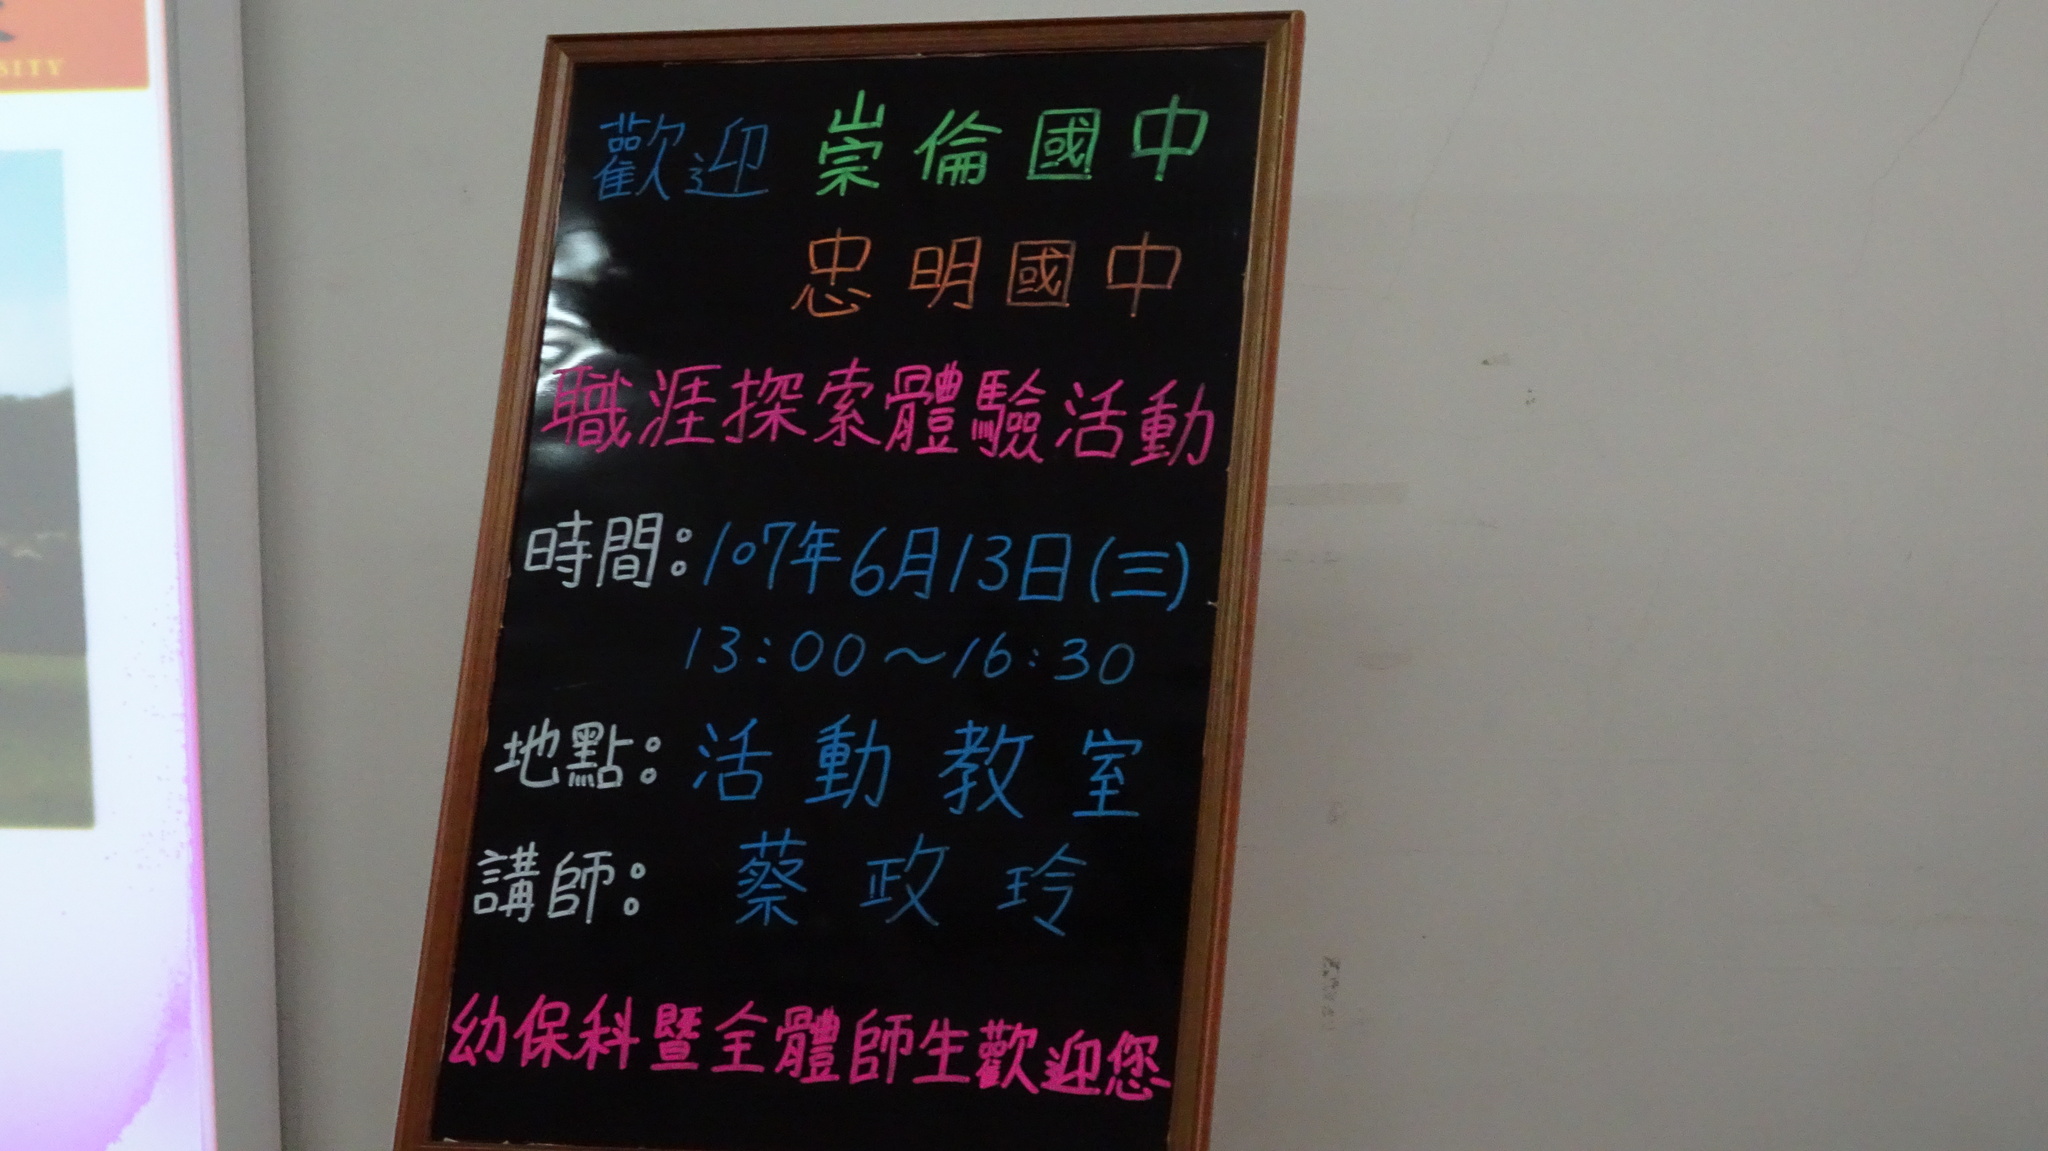 SITY
歡迎 崇倫國中
忠明國中
職涯探索體驗活動
時間:107年6月13日(三)
13:00～16:30
地點:活動教室
講師:蔡政玲
幼保科暨全體師生歡迎您